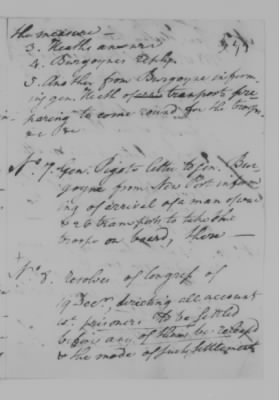 the measure —
3. Heaths answer
4. Burgoynes reply.
5. Another from Burgoyne inform-
ing gen. Heth of transports pre
paring to come round for the troops
&c &c
No. 7. Gen. Pigots letter to Gen. Bur-
goyne from New Port inform
ing of arrival of a man of war
& 26 transports to take the
troops on board, there —
No. 8. resolves of congress of
19 Decr, directing all account
of prisoners to be settled
before any of them be released
& the mode of such settlement